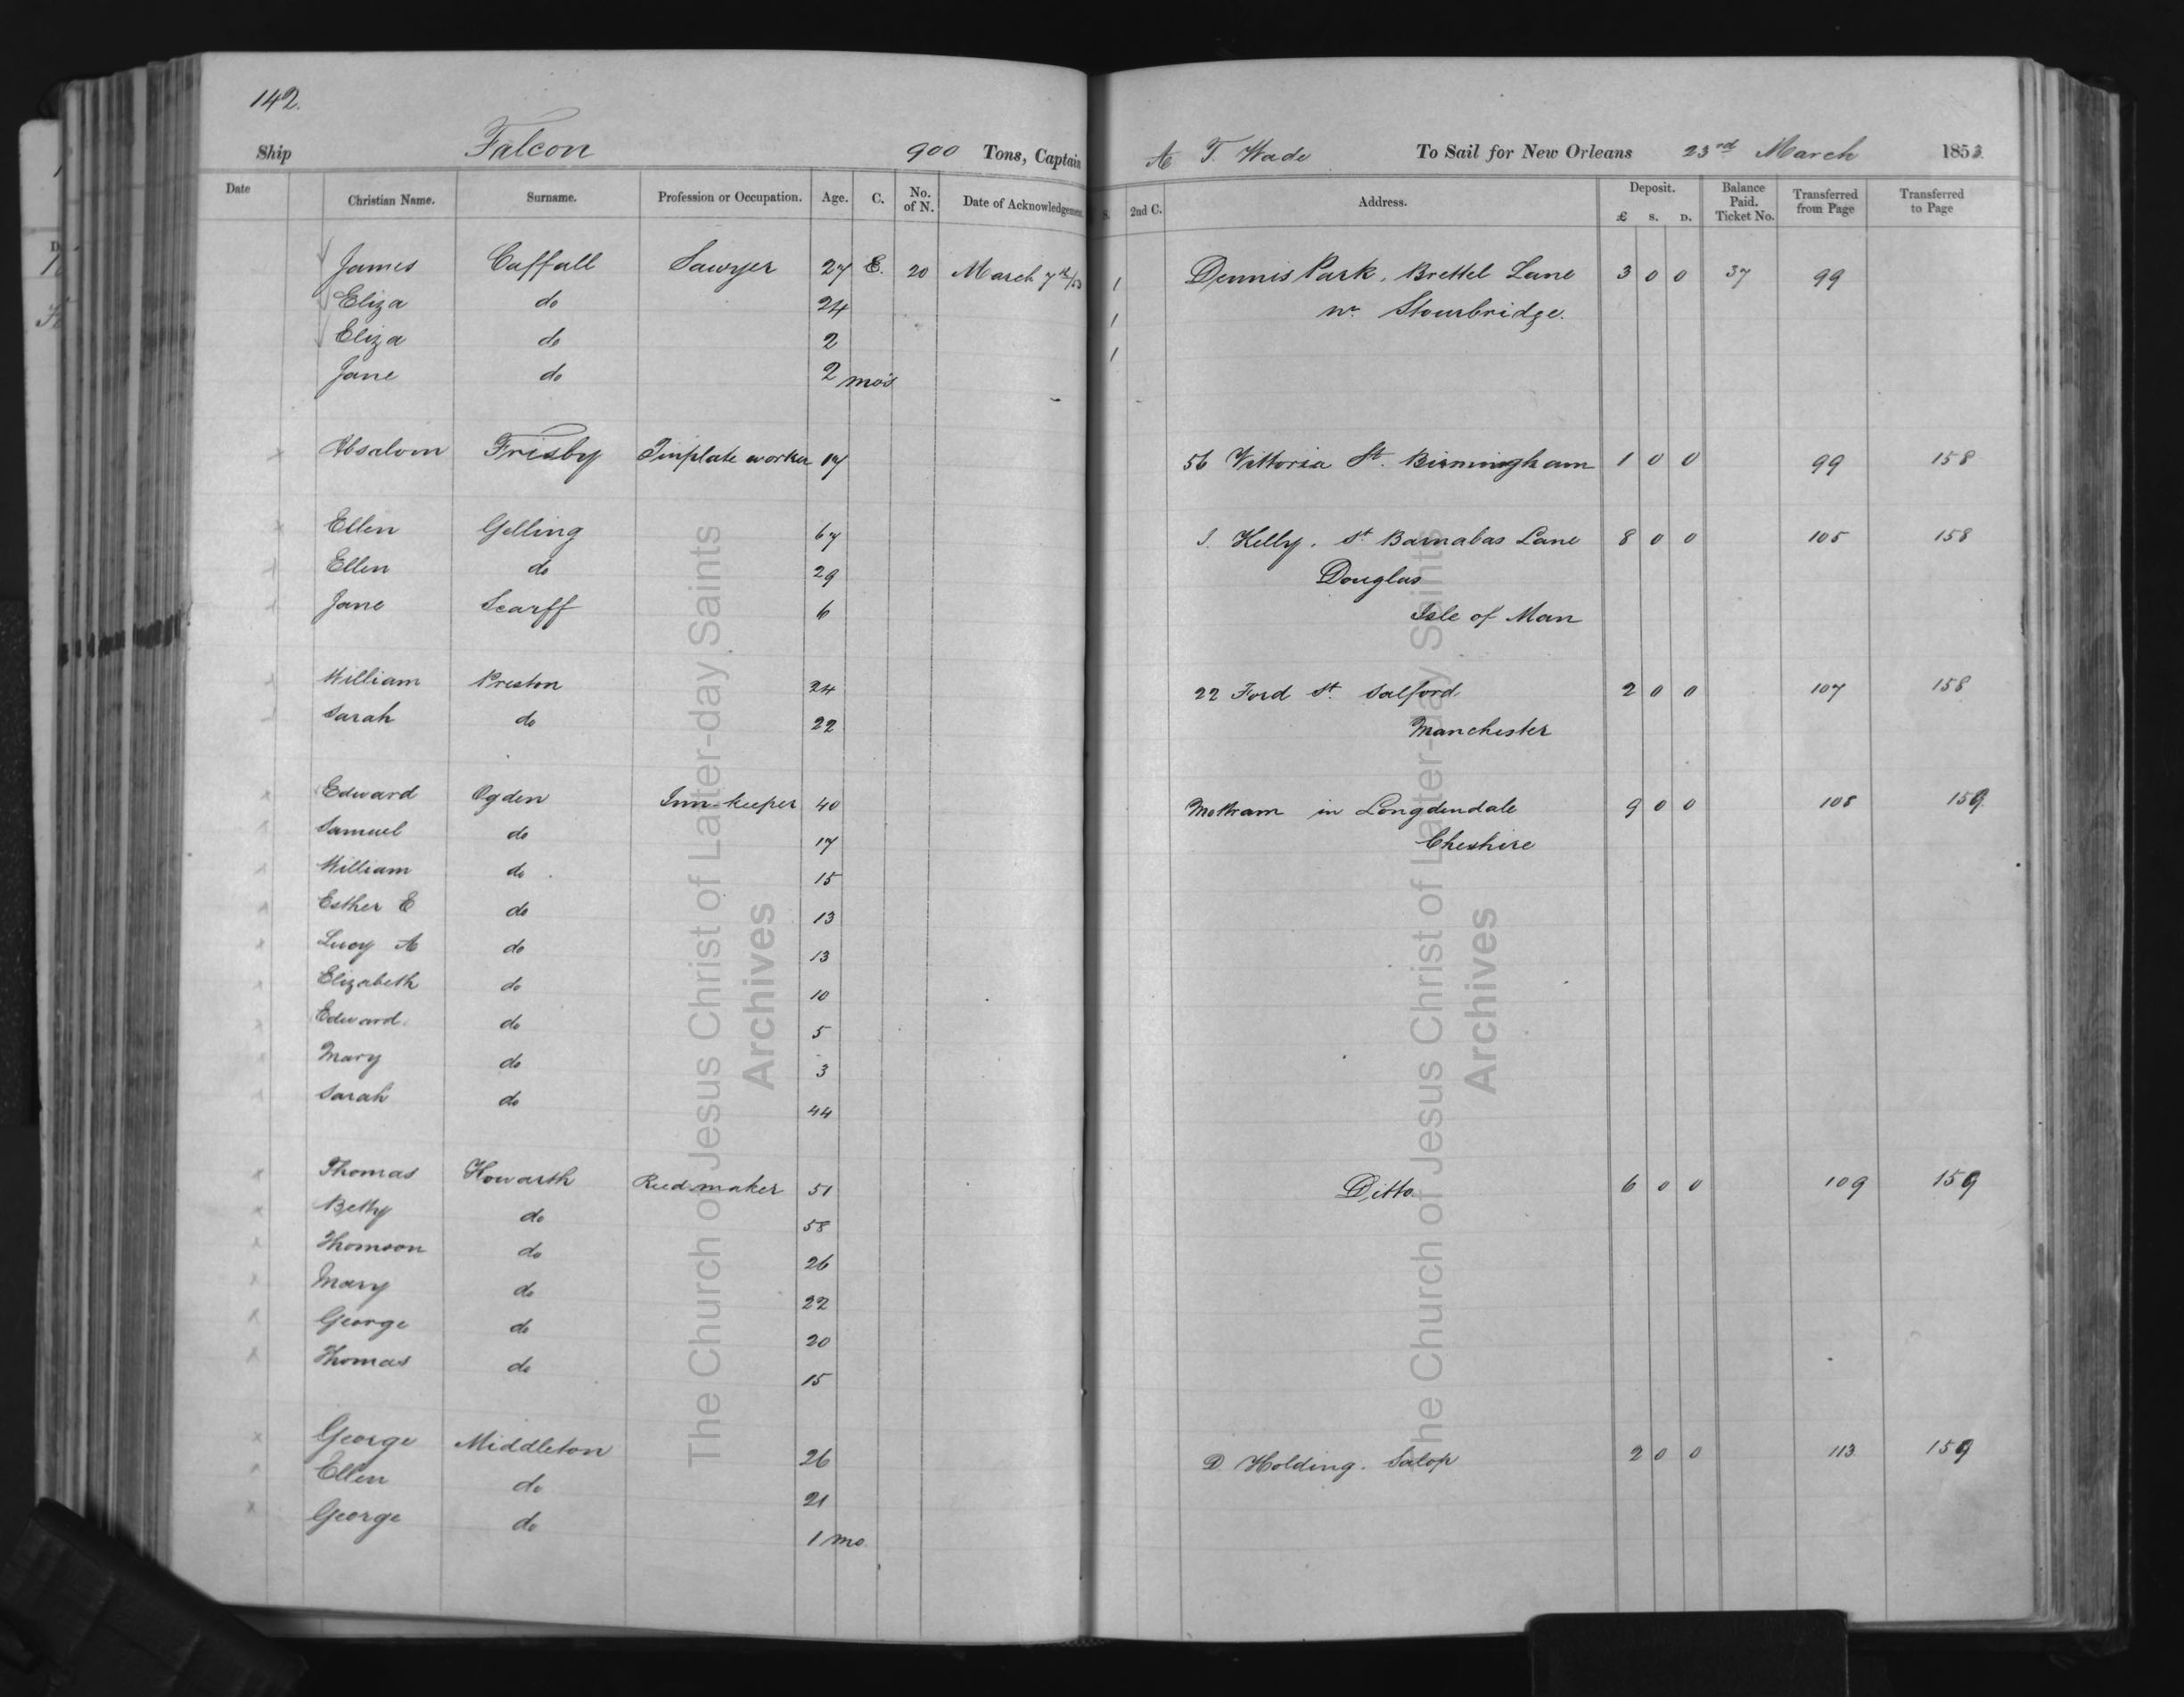 142.
Ship Falcon 900 Tons, Captain A T. Wade To Sail for New Orleans 23rd March 1853
Date Christian Name. Surname. Profession or Occupation. Age. C. No. of N. Date of Acknowledgement. S. 2nd C. Address. Deposit. £ S. D. Balance Paid. Ticket No. Transferred from Page Transferred to Page
James Caffall Sawyer 27 E. 20 March 7th/53 1 Dennis Park, Brettel Lane 3 0 0 37 99
Eliza do 24 1 nr Stourbridge.
Eliza do 2 1
Jane do 2 mos
Absalom Frisby Tinplate worker 17 56 Vittoria St. Birmingham 1 0 0 99 158
Ellen Gelling 67 J. Kelly. St Barnabas Lane 8 0 0 105 158
Ellen do 29 Douglas
Jane Scarff 6 Isle of Man
William Preston 24 22 Ford St. Salford 2 0 0 107 158
Sarah do 22 Manchester
Edward Ogden Inn-keeper 40 Mottram in Longdendale 9 0 0 108 159
Samuel do 17 Cheshire
William do 15
Esther E do 13
Lucy A do 13
Elizabeth do 10
Edward do 5
Mary do 3
Sarah do 44
Thomas Howarth Reed maker 51 Ditto 6 0 0 109 159
Betty do 58
Thomson do 26
Mary do 22
George do 20
Thomas do 15
George Middleton 26 D. Holding. Salop 2 0 0 113 159
Ellen do 21
George do 1 mo
The Church of Jesus Christ of Latter-day Saints
Archives
The Church of Jesus Christ of Latter-day Saints
Archives